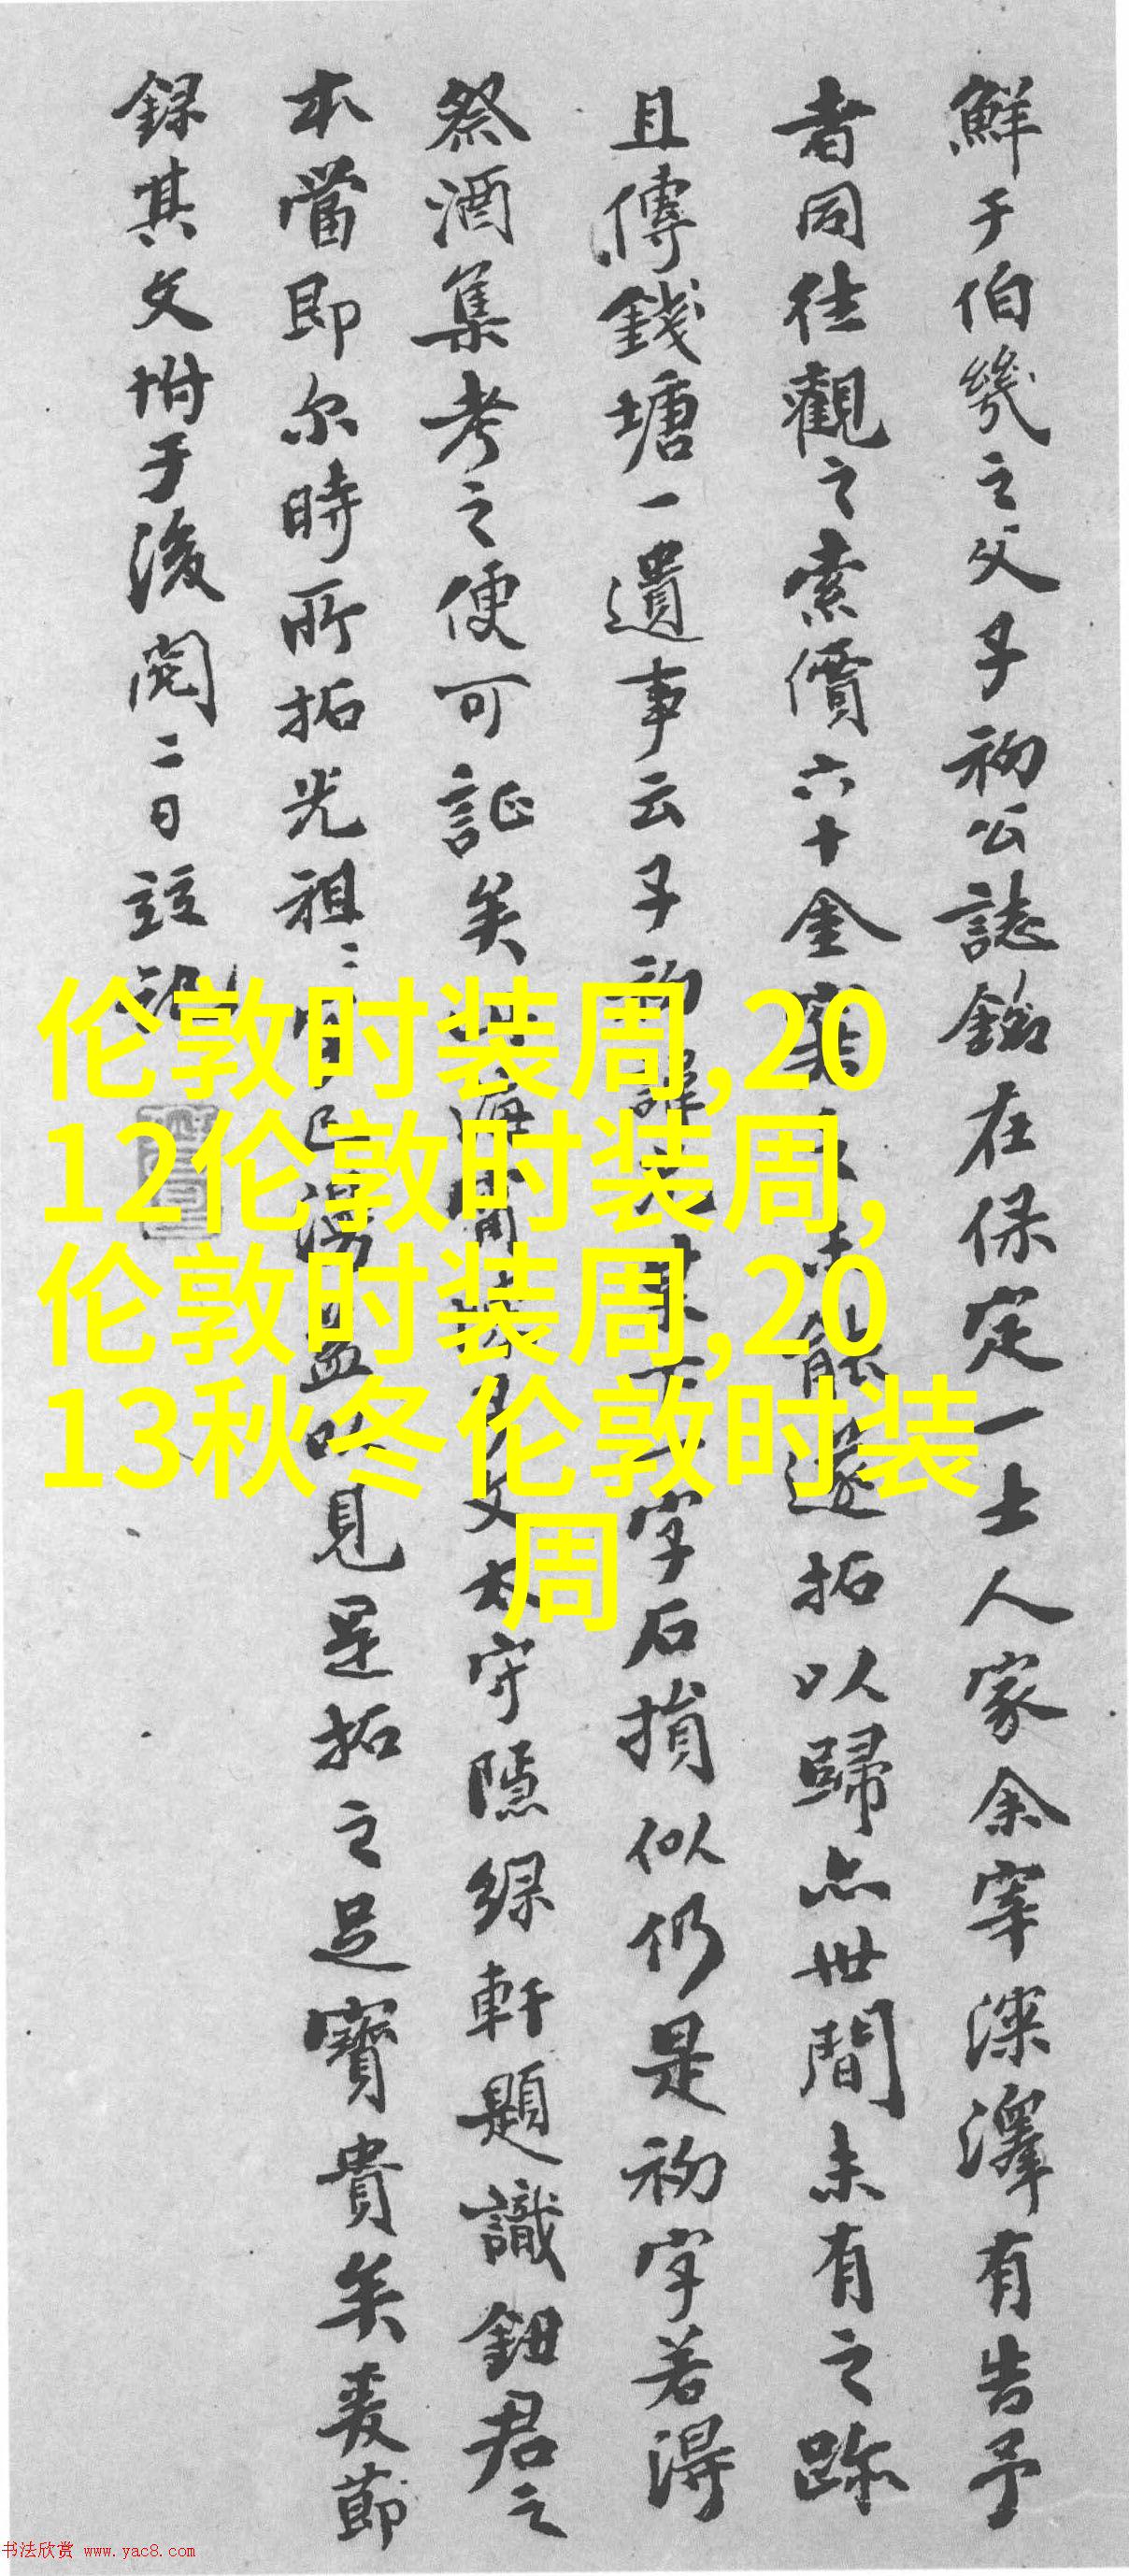 鮮于伯幾之父子初公誌銘在保定一士人家余宰深澤有告予
者同往觀之索價六十金竆未能遂拓以歸亦世間未有之跡
且傳錢塘一遺事云子初諱字石損似仍是初字若得
祭酒集考之便可証矣文太守隱綠軒題識鈕君之
本當即尔時所拓光祖見是拓之足寶貴矣爰節
錄其文坿于後閏二日諠記
伦敦时装周,20
12伦敦时装周,
伦敦时装周,20
13秋冬伦敦时装
周
书法欣赏 www.yac8.com